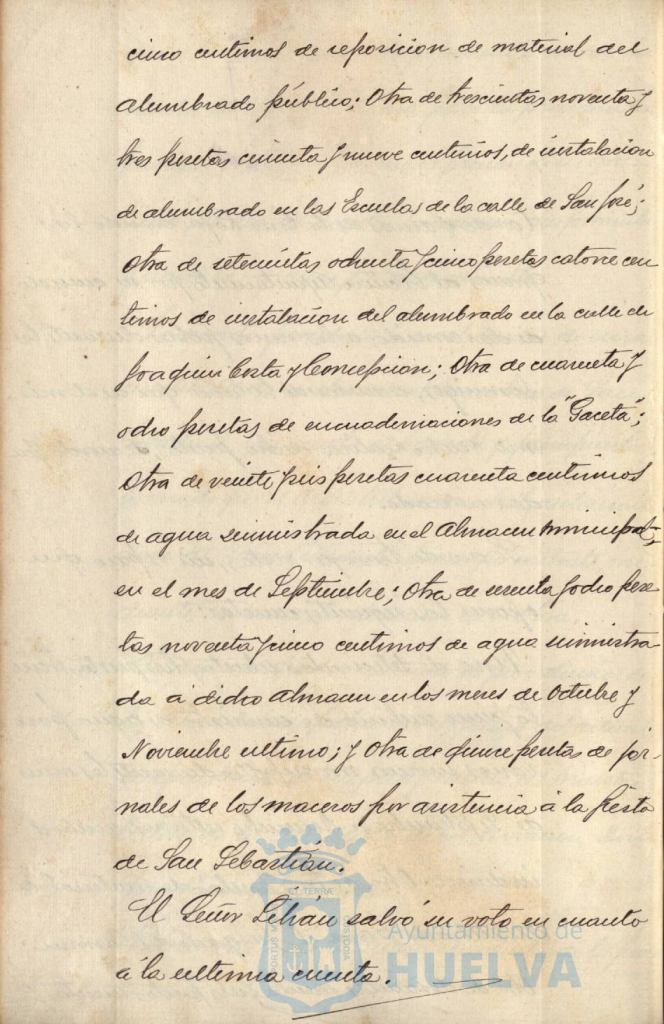 cinco centimos de reposicion de material del
alumbrado público; Otra de trescientas noventa y
tres pesetas cincuenta y nueve centimos, de instalacion
de alumbrado en las Escuelas de la calle de San José;
Otra de setecientas ochenta y cinco pesetas catorce cen
timos de instalacion del alumbrado en la calle de
Joaquin Costa y Concepcion; Otra de cuarenta y
ocho pesetas de encuadernaciones de la "Gaceta";
Otra de veinte y seis pesetas cuarenta centimos
de agua suministrada en el Almacen municipal,
en el mes de Septiembre; Otra de sesenta y ocho pese
tas noventa y cinco centimos de agua suministra-
da á dicho Almacen en los meses de Octubre y
Noviembre ultimo; y Otra de quince pesetas de jor-
nales de los maceros por asistencia á la fiesta
de San Sebastián.
El Señor salvó su voto en cuanto
á la ultima cuenta.
Ayuntamiento de
HUELVA